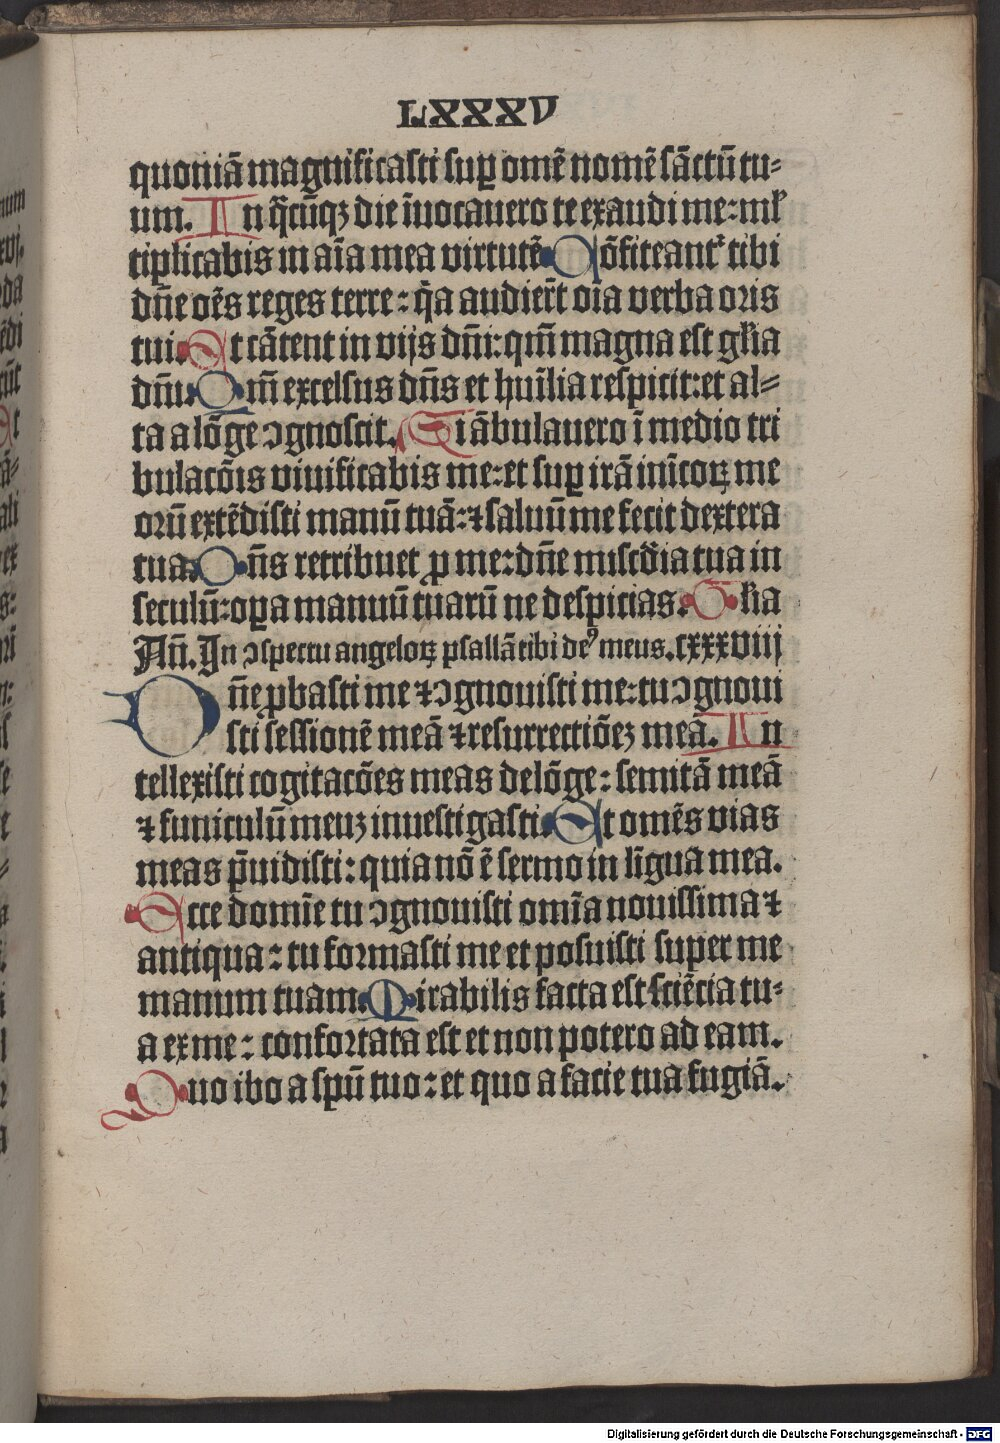 LXXXV
quoniā magnificasti suꝑ omē nomē sāctū tu-
um. In q̄cūqꝫ die īuocauero te exaudi me: ml'
tiplicabis in aīa mea virtutē Cōfiteant' tibi
dn̄e oēs reges terre: q̄a audierr̄t oīa verba oris
tui Et cātent in vijs dn̄i: qm̄ magna est gl'ia
dn̄i. Qm̄ excelsus dn̄s et huīlia respicit: et al-
ta a lōge ɔgnoscit. Si ābulauero ī medio tri
bulacōis viuificabis me: et suꝑ irā inīcoꝝ me
orū extēdisti manū tuā: ⁊ saluū me fecit dextera
tua. Dn̄s retribuet ꝓ me: dn̄e misc̄dia tua in
seculū: oꝑa manuū tuarū ne despicias. Gl'ia
An̄. In ɔspectu angeloꝝ psallā tibi deꝰ meus. cxxxviij
Dn̄e ꝓbasti me ⁊ ɔgnouisti me: tu ɔgnoui
sti sessionē meā ⁊ resurrectiōeꝫ meā. In
tellexisti cogitacōes meas de lōge: semitā meā
⁊ funiculū meuꝫ inuestigasti. Et omēs vias
meas p̄uidisti: quia nō ē sermo in līgua mea.
Ecce domīe tu ɔgnouisti omīa nouissima ⁊
antiqua: tu formasti me et posuisti super me
manum tuam. Mirabilis facta est sciēcia tu-
a ex me: confortata est et non potero ad eam.
Quo ibo a spū tuo: et quo a facie tua fugiā.
Digitalisierung gefördert durch die Deutsche Forschungsgemeinschaft - DFG